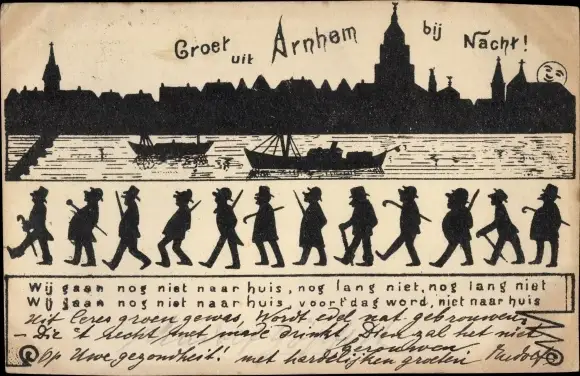 Groet uit Arnhem bij Nacht!
Wij gaan nog niet naar huis, nog lang niet, nog lang niet
Wij gaan nog niet naar huis, voor t dag word, niet naar huis
Uit Ceres groen gewas, Wordt edel nat gebrouwen.
- Die 't slecht met made drinkt, Dien zal het niet
berouwen
Op Uwe gezondheid! met hartelijken groeten Rudolf